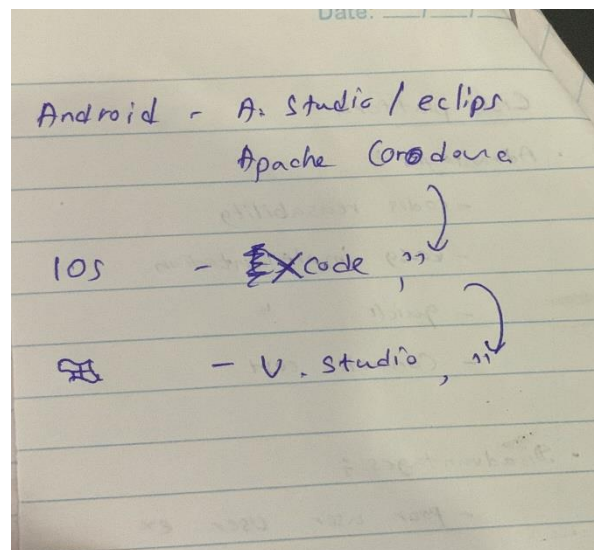 Date: __/__/__
Android - A. Studio / eclips
Apache Corodova
IOS - Xcode, ,,
- V. Studio, ,,